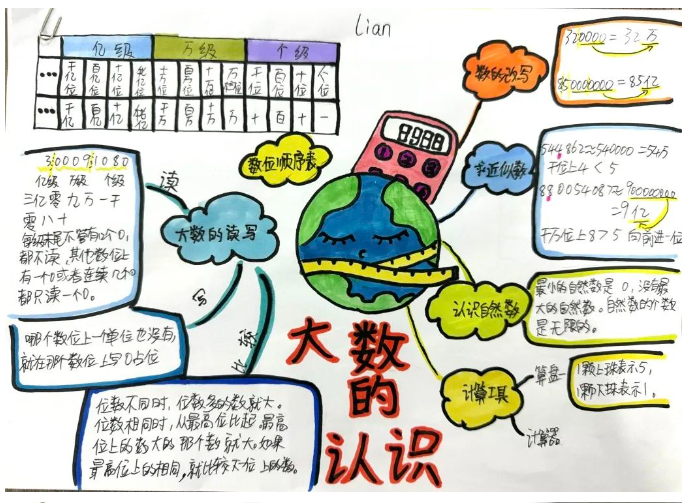 Lian
亿级 万级 个级
... 千亿位 百亿位 十亿位 亿位 千万位 百万位 十万位 万位 千位 百位 十位 个位
... 千亿 百亿 十亿 亿 千万 百万 十万 万 千 百 十 一
数位顺序表
8988
数的改写
320000=32万
8500000000=85亿
求近似数
544862≈540000=54万
千位上4<5
880054087≈900000000
=9亿
千万位上8>5 向前进一位
认识自然数
最小的自然数是0,没有最
大的自然数。自然数的个数
是无限的。
计算工具
算盘
1颗上珠表示5,
1颗下珠表示1。
计算器
大数的读写
读
300091080
亿级 万级 个级
三亿零九万一千
零八十
每级末尾不管有几个0,
都不读,其他数位上
有一个0或者连续几个0
都只读一个0。
写
哪个数位上一个单位也没有,
就在那个数位上写0占位
比较
位数不同时,位数多的数就大。
位数相同时,从最高位比起,最高
位上的数大的那个数就大。如果
最高位上的相同,就比较下一位上的数。
大数
的
认识